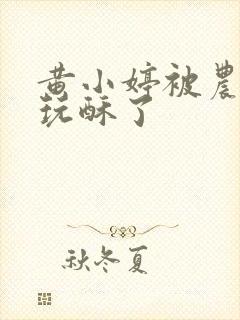 黄小婷被農
玩酥了
秋冬夏